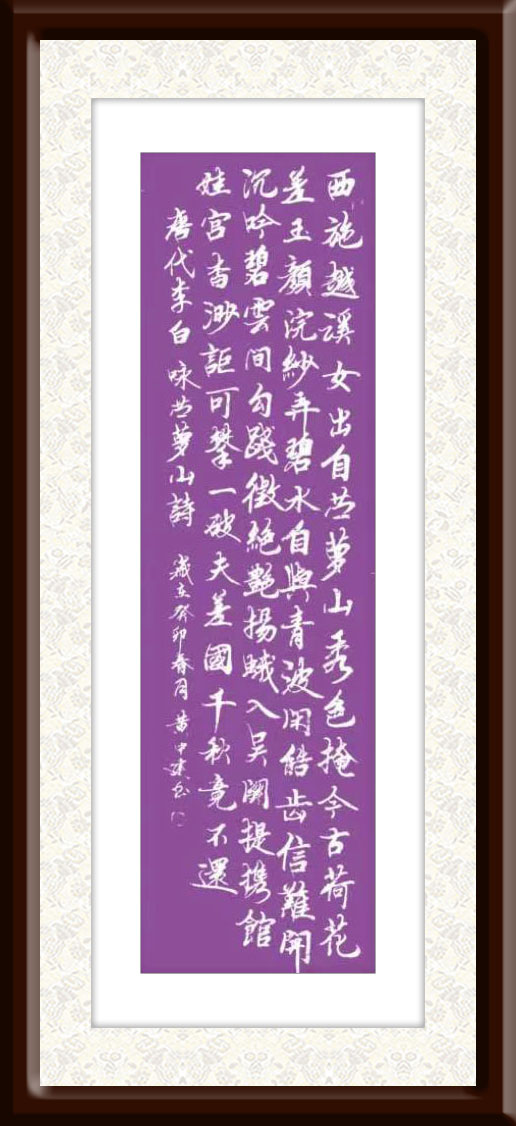 西施越溪女出自苎萝山秀色掩今古荷花
差玉顏浣紗弄碧水自與青波闲皓齿信難開
沉吟碧雲間勾踐徵絕艷揚蛾入吴関提携館
娃宫杳渺詎可攀一破夫差國千秋竟不還
唐代李白咏苎萝山詩 歲在癸卯春月黄中